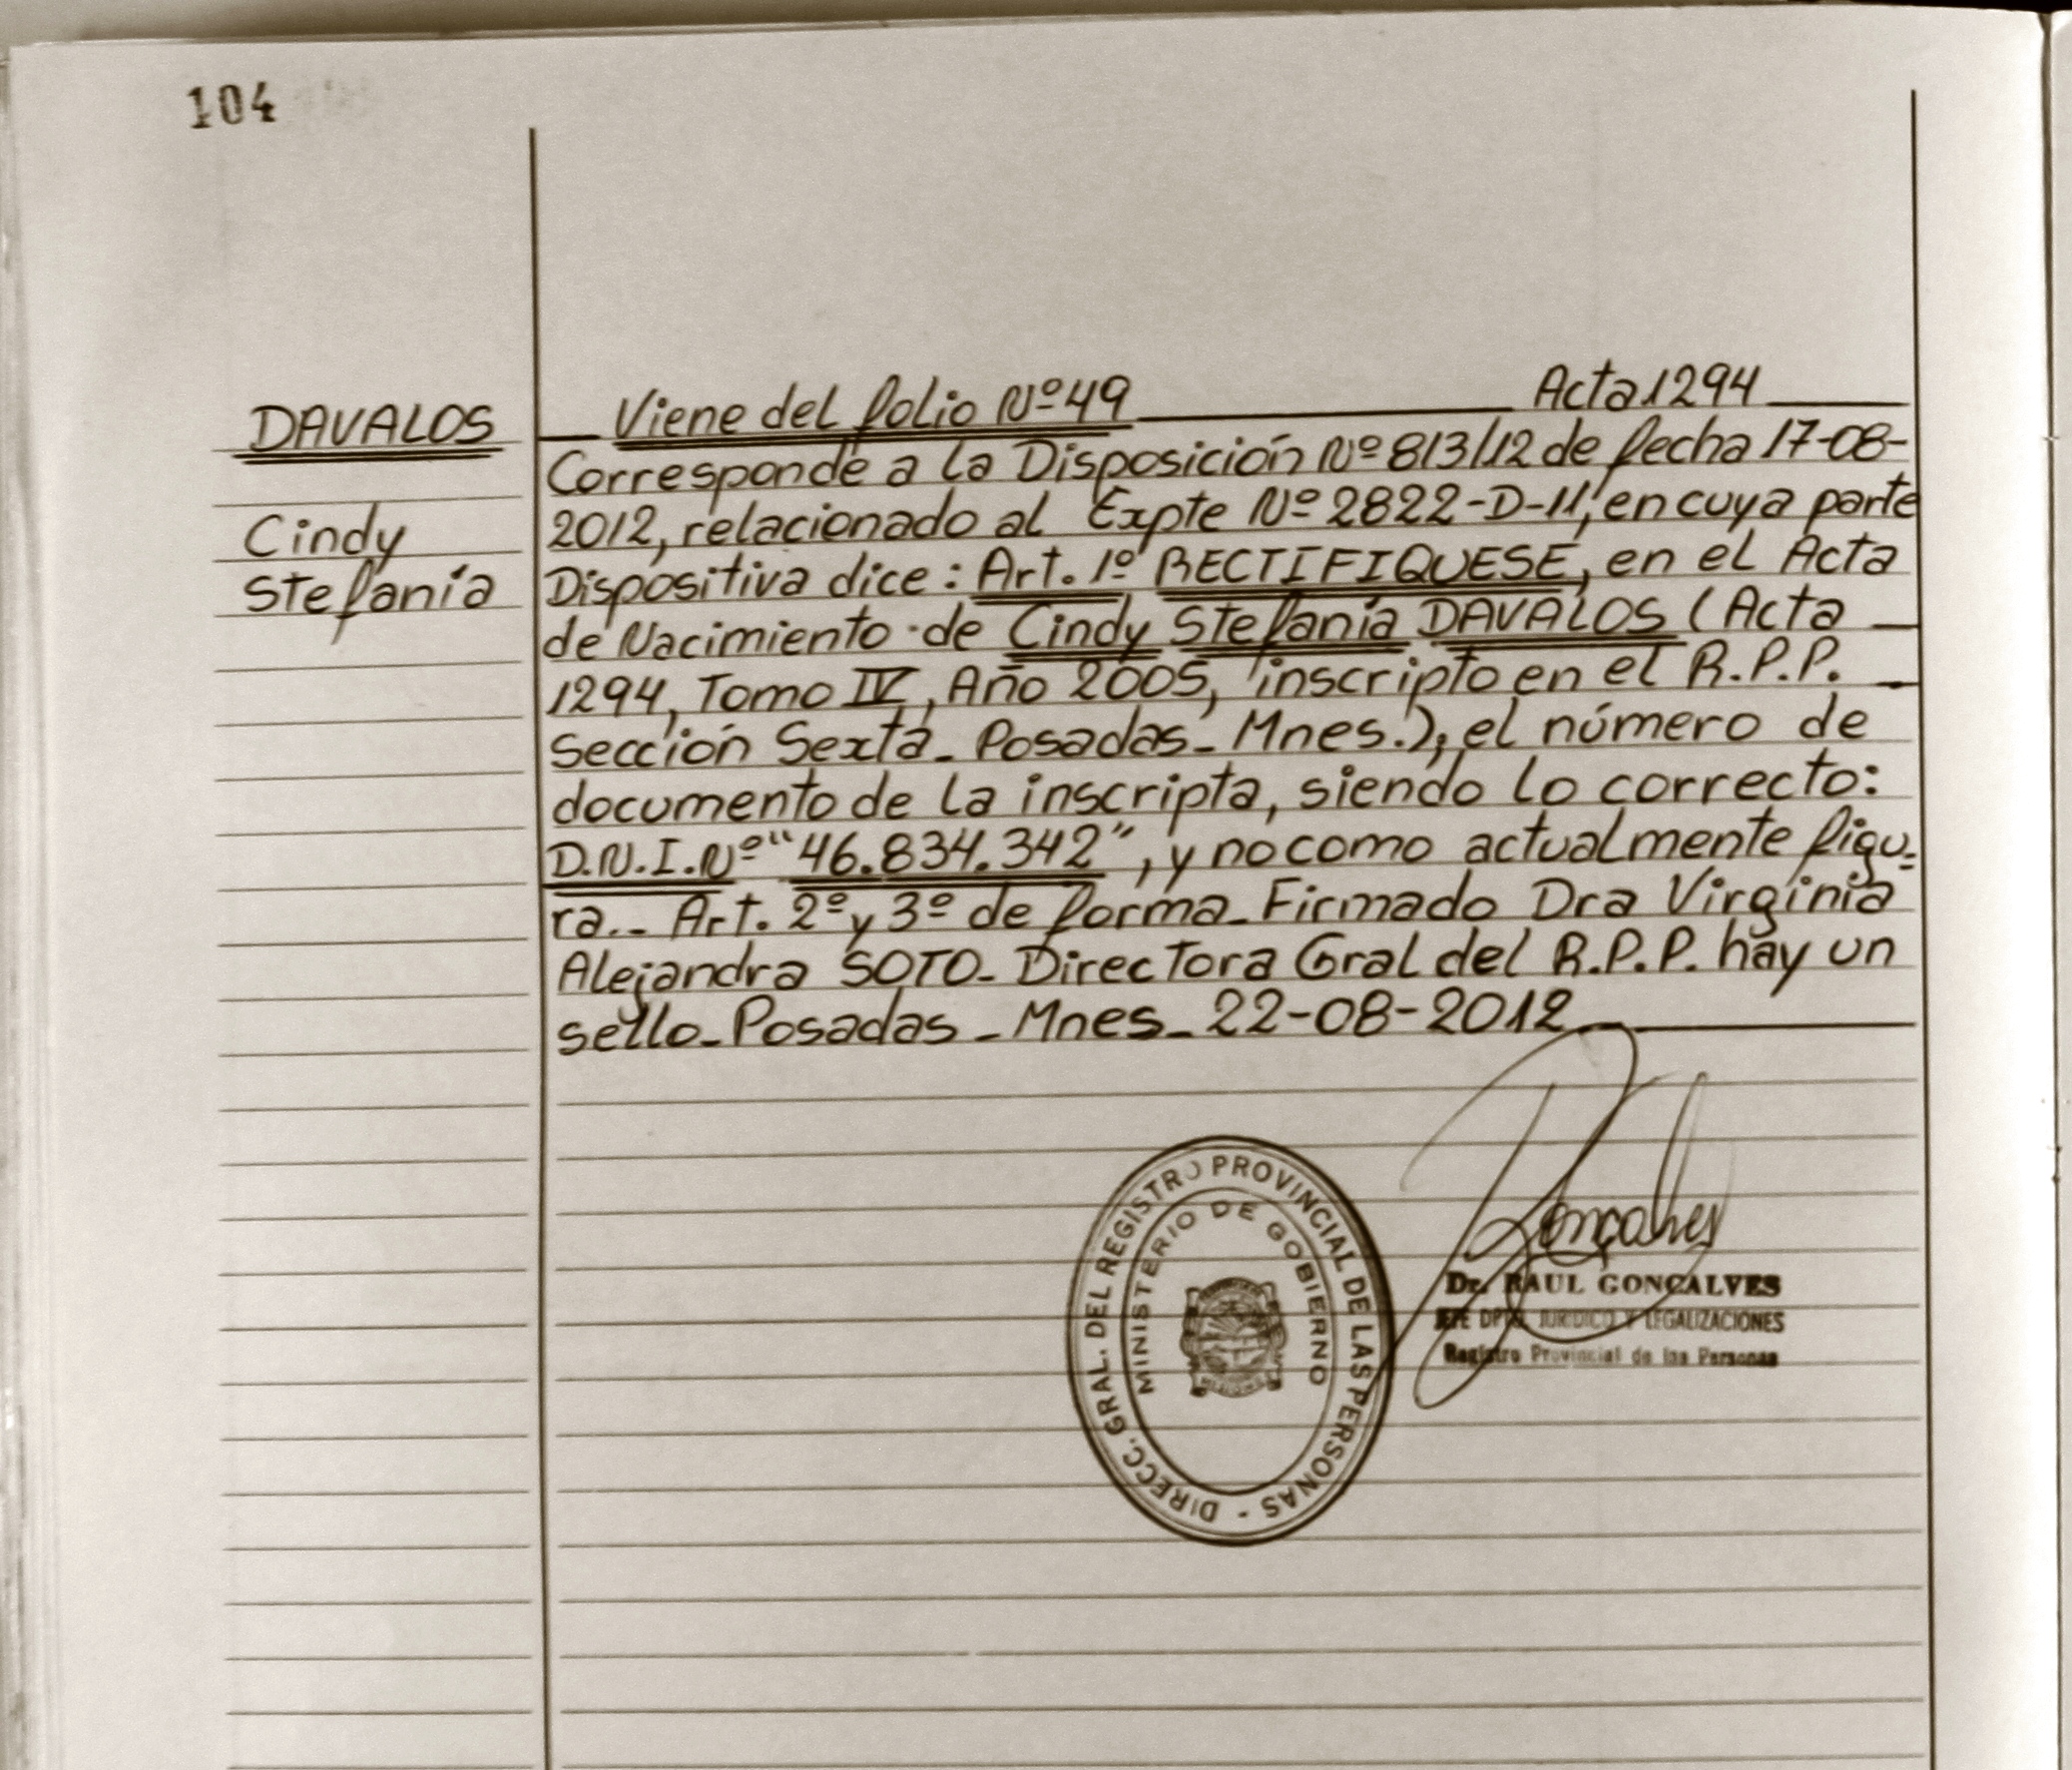 104
DAVALOS
Cindy
Stefanía
Viene del folio Nº 49 Acta 1294
Corresponde a la Disposición Nº 813/12 de fecha 17-08-
2012, relacionado al Expte Nº 2822-D-11, en cuya parte
Dispositiva dice: Art. 1º RECTIFIQUESE, en el Acta
de Nacimiento de Cindy Stefanía DAVALOS (Acta
1294, Tomo IV, Año 2005, inscripto en el R.P.P.
Sección Sexta_ Posadas_ Mnes.), el número de
documento de la inscripta, siendo lo correcto:
D.N.I. Nº "46.834.342", y no como actualmente figu=
ra._ Art. 2º y 3º de forma_ Firmado Dra Virginia
Alejandra SOTO_ Directora Gral del R.P.P. hay un
sello_ Posadas _ Mnes_ 22-08-2012_
DIRECC. GRAL. DEL REGISTRO PROVINCIAL DE LAS PERSONAS -
MINISTERIO DE GOBIERNO
Gonçalves
Dr. RAUL GONÇALVES
JEFE DPTO. JURIDICO Y LEGALIZACIONES
Registro Provincial de las Personas